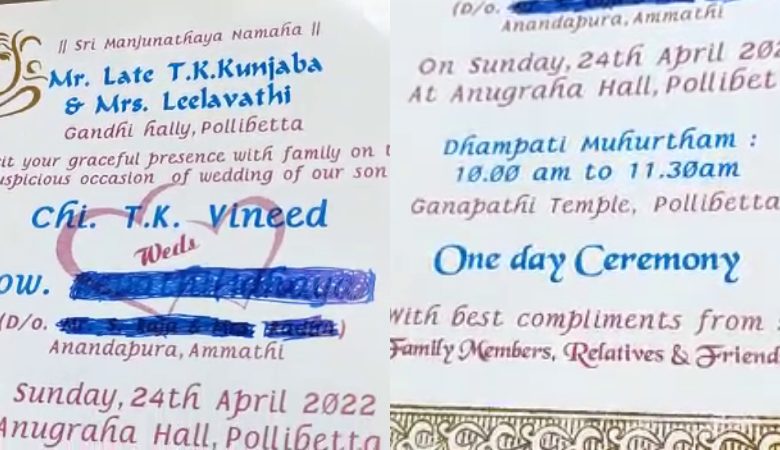 || Sri Manjunathaya Namaha ||
Mr. Late T.K.Kunjaba
& Mrs. Leelavathi
Gandhi hally, Pollibetta
it your graceful presence with family on t
uspicious occasion of wedding of our son
Chi. T.K. Vineed
Weds
ow.
(D/o.
Anandapura, Ammathi
Sunday, 24th April 2022
Anugraha Hall, Pollibetta
(D/o.
Anandapura, Ammathi
On Sunday, 24th April 202
At Anugraha Hall, Pollibet
Dhampati Muhurtham :
10.00 am to 11.30am
Ganapathi Temple, Pollibetta
One day Ceremony
With best compliments from :
Family Members, Relatives & Friend